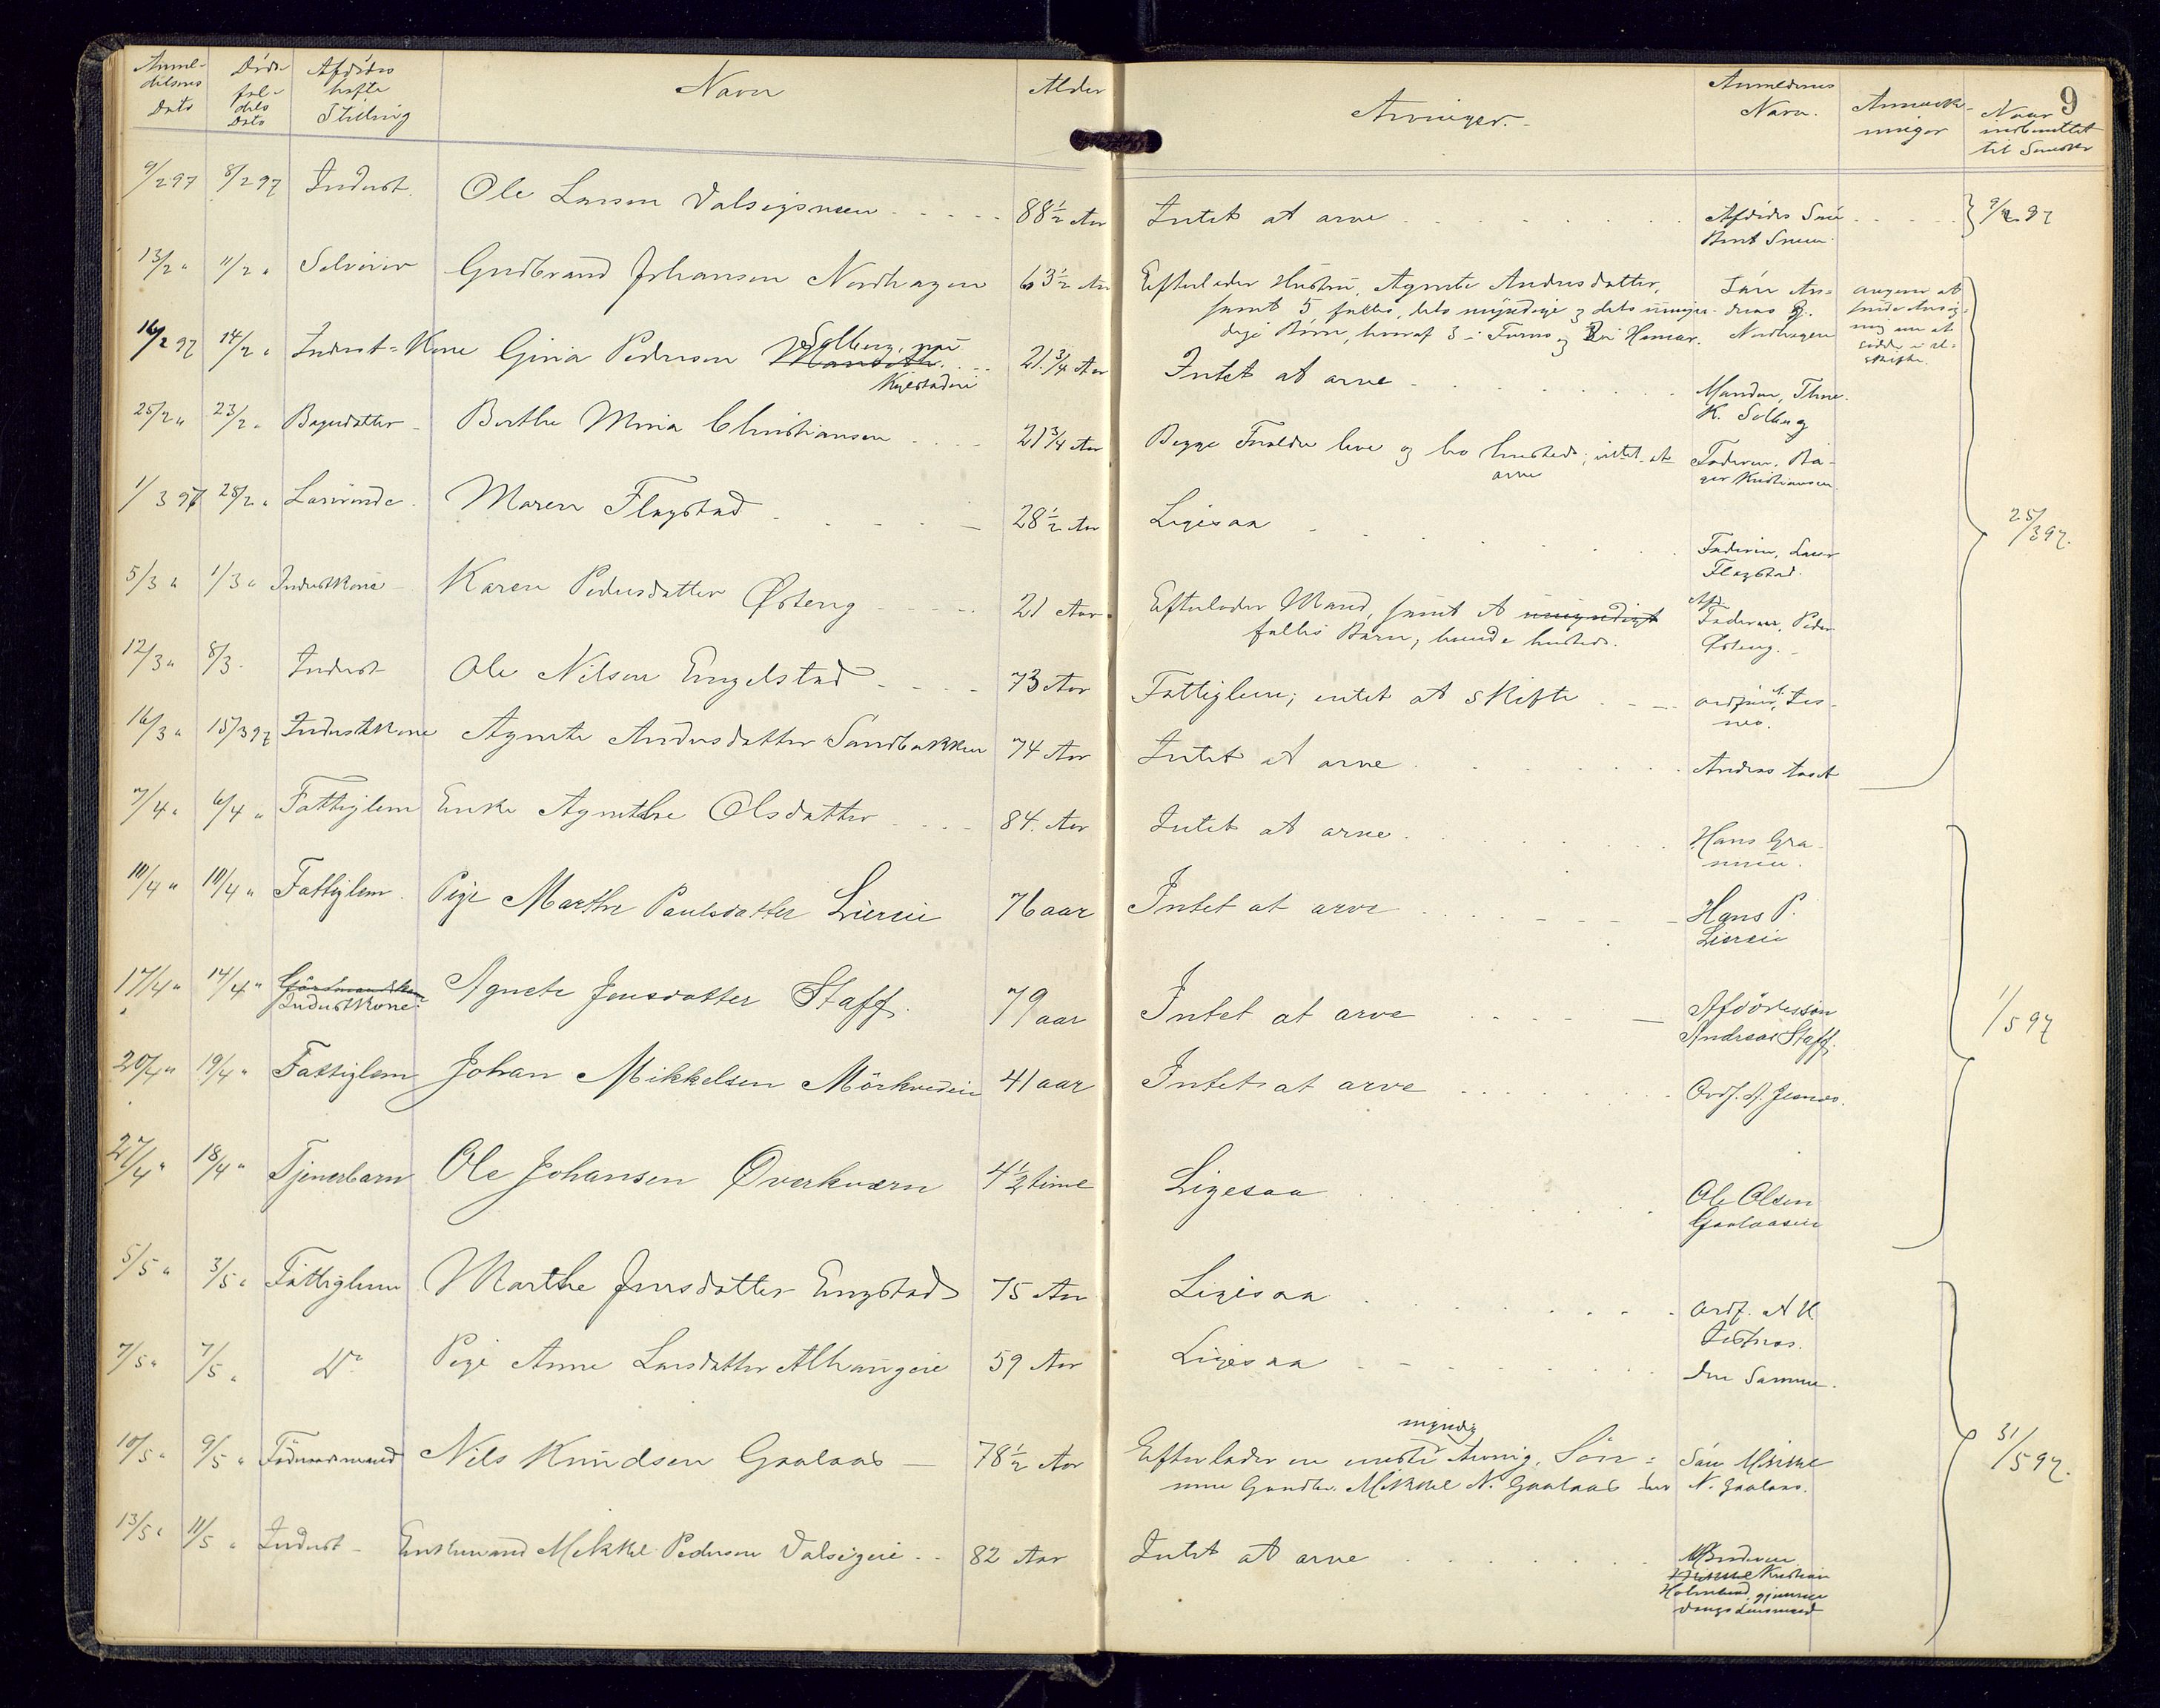 9
Anmel- Døds- Afdødes Navn Alder Arvinger. Anmelderens Anmærk- Naar
delsens fal- havte Navn. ninger indberettet
Dato dels Stilling til
Dato
9/2 97 8/2 97 Inderst. Ole Larsen Dalsigsveen 88½ Aar Intet at arve Afdødes Søn 9/2 97
Bernt Sveen
13/2 " 11/2 " Selveier Gudbrand Johansen Nordhagen 63½ Aar Efterlader Hustru, Agnete Andersdatter, Søn An- angiver at
samt 5 fælles, dels myndige og dels umyn- dreas G.
dige Børn, hvoraf 3 i Furnes og 2 i Hamar. Nordhagen
16/2 97 14/2 " Inderst-Kone Gina Pedersen Solberg, 21¾ Aar Intet at arve Manden, Thore
K. Solberg
25/2 " 23/2 " Bagerdatter Berthe Mina Christiansen 21¾ Aar Begge Forældre leve og bo hersteds; intet at Faderen, Ba-
arve ger Kristiansen
1/3 97 28/2 " Lærerinde Maren Flagstad 28½ Aar Ligesaa Faderen, Lærer
Flagstad.
25/3 97.
5/3 " 1/3 " Inderstkone Karen Pedersdatter Østeng 21 Aar Efterlader Mand, samt et umyndigt Afd.
fælles Barn, boende hersteds. Faderen, Peder
Østeng.
12/3 " 8/3 Inderst Ole Nilsen Engelstad 73 Aar Fattiglem; intet at skifte
16/3 " 15/3 97 Inderstkone Agnete Andersdatter Sandbakken 74 Aar Intet at arve Andreas
7/4 " 6/4 " Fattiglem Enke Agnethe Olsdatter 84 Aar Intet at arve Hans
10/4 " 10/4 " Fattiglem Pige Marthe Paulsdatter Liereie 76 aar Intet at arve Hans P.
Liereie
17/4 " 14/4 " Gårdmandskone Agnete Jensdatter Staff. 79 aar Intet at arve Afdødes søn
Inderstkone Andreas Staff.
1/5 97
20/4 " 19/4 " Fattiglem Johan Mikkelsen Mörkvedeie 41 aar Intet at arve Ordf.
27/4 " 18/4 " Tjenerbarn Ole Johansen Overkværn 4½ time Ligesaa Ole Olsen
Gaalaaseie
5/5 " 3/5 " Fattiglem Marthe Jensdatter Engstad 75 Aar Ligesaa Ordf. A K
7/5 " 7/5 " Do Pige Anne Larsdatter Alhaugeie 59 Aar Ligesaa den samme.
myndig
10/5 " 9/5 " Føderaadsmand Nils Knudsen Gaalaas 78½ Aar Efterlader en eneste Arving, Søn- Søn Mikkel
nen Gaardbr. Mikkel N. Gaalaas her N. Gaalaas.
31/5 97.
13/5 " 11/5 " Inderst Enkemand Mikkel Pedersen Dalsigeie 82 Aar Intet at arve
Kristian